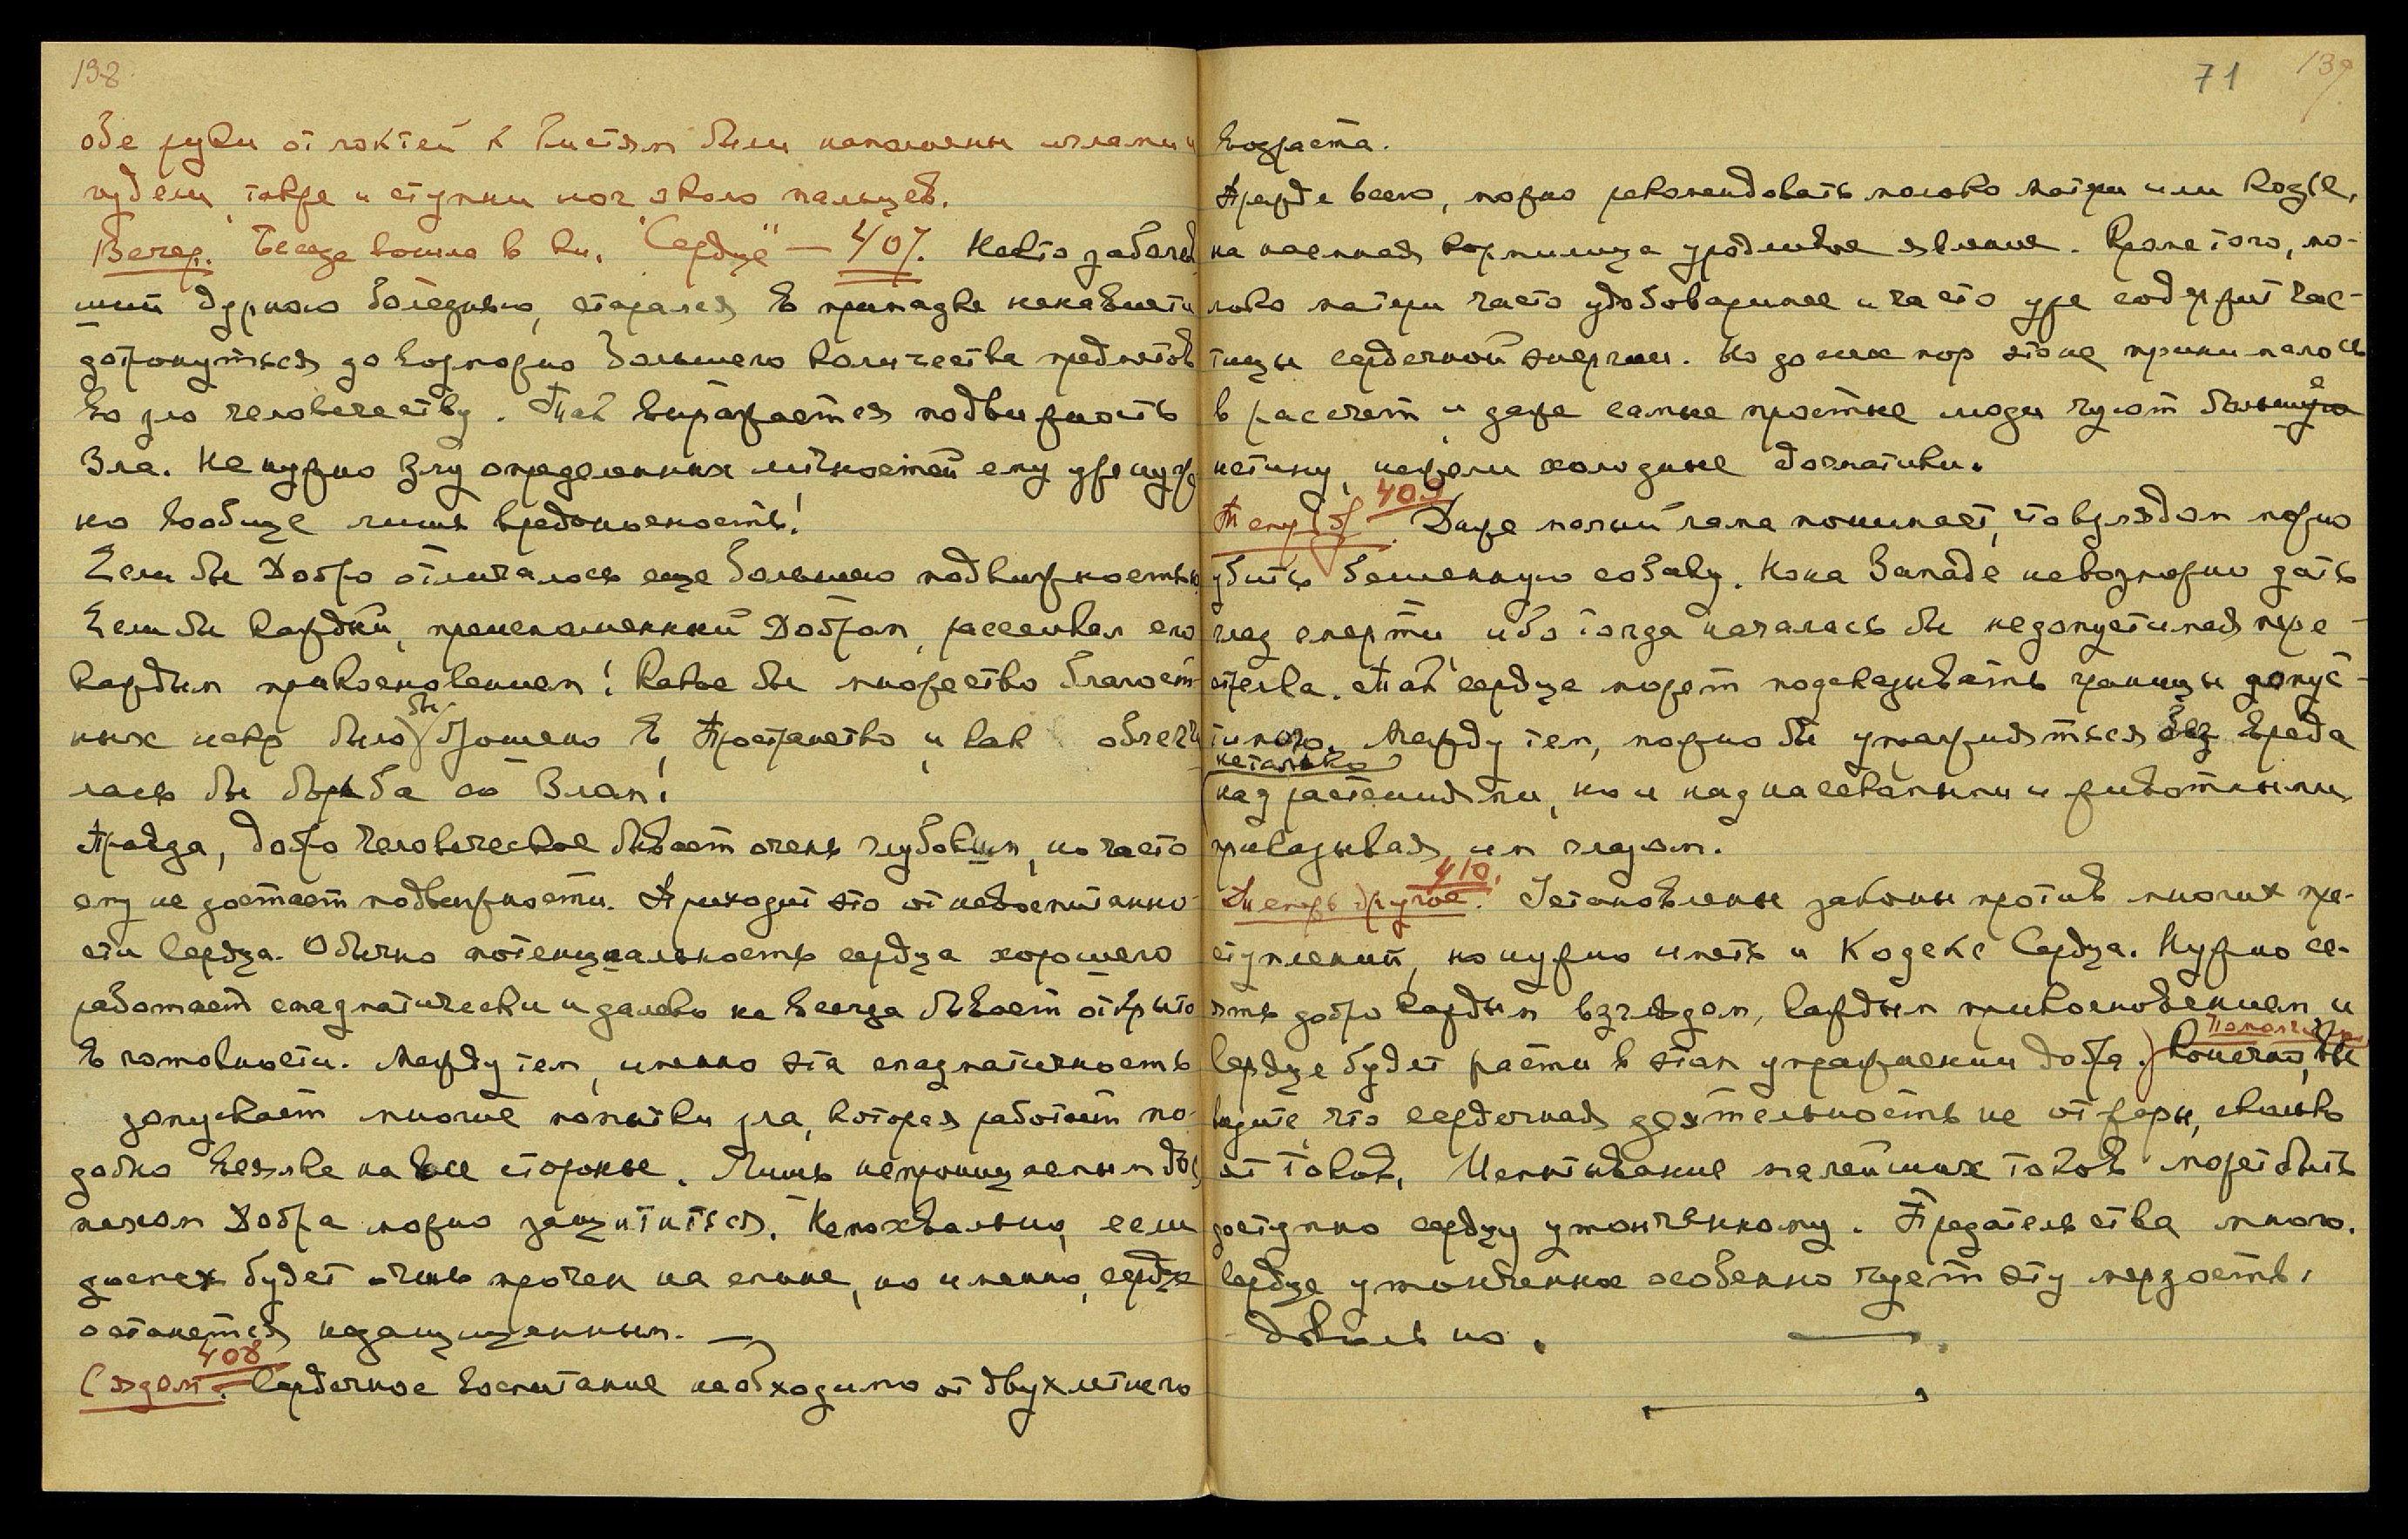 138
обе руки от локтей к кистям были наполнены иглами и
гудели, также и ступни ног около пальцев.
Вечер. Беседа вошла в кн. "Сердце" — 407. Некто заболев-
ший дурною болезнью, старался в припадке ненависти
дотронуться до возможно большего количества предметов
во зло человечеству. Так выражается подвижность
Зла. Не нужно злу определенных личностей ему уже нуж-
но вообще лишь вредоносность!
Если бы Добро отличалось еще большею подвижностью.
Если бы каждый, преисполненный Добром, рассеивал его
каждым прикосновением! Какое бы множество благост-
ных искр было бы брошено в Пространство, и как облегчи
лась бы борьба со Злом!
Правда, добро человеческое бывает очень глубоким, но часто
ему не достает подвижности. Приходит это от невоспитанно-
сти сердца. Обычно потенциальность сердца хорошего
работает спазматически и далеко не всегда бывает открыто
в готовности. Между тем, именно эта спазматичность
допускает многие попытки зла, которая работает по-
добно веялке на все стороны. Лишь непроницаемым дос
пехом Добра можно защититься. Непохвально, если
доспех будет очень прочен на спине, но именно, сердце
останется незащищенным. —
408
Создам. Сердечное воспитание необходимо от двухлетнего
71 139
возраста.
Прежде всего, можно рекомендовать молоко матери или козье,
но наемная кормилица уродливое явление. Кроме того, мо-
локо матери часто удобоваримее и часто уже содержит час-
тицы сердечной энергии. Но до сих пор это не принималось
в рассчет и даже самые простые люди чуют больше
истину, нежели холодные догматики.
409
Теперь Даже малый лама понимает, что взглядом можно
убить бешенную собаку. Но на Западе невозможно дать
глаз смерти, ибо тогда началась бы недопустимая пере-
стрелка. Так, сердце может подсказывать границы допус-
тимого. Между тем, можно бы упражняться без вреда
не только
над растениями, но и над насекомыми и животными
приказывая им глазом.
410.
Теперь другое. Установлены законы против многих пре-
ступлений, но нужно иметь и Кодекс Сердца. Нужно се-
ять добро каждым взглядом, каждым прикосновением и
сердце будет расти в этом упражнении добра. Конечно, вы
видите, что сердечная деятельность не от жары, сколько
от токов. Испытывание малейших токов может быть
доступно сердцу утонченному. Предательства много.
Сердце утонченное особенно чует эту мерзость.
Довольно. —